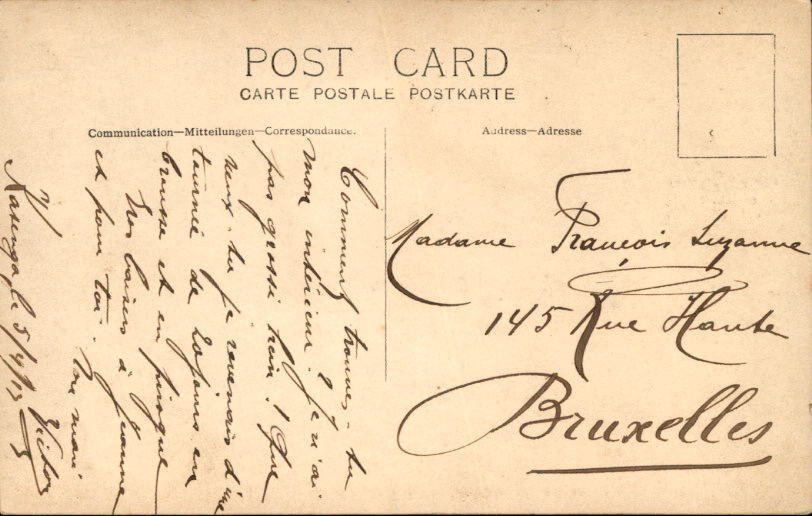 POST CARD
CARTE POSTALE POSTKARTE
Communication—Mitteilungen—Correspondance.
Address—Adresse
Comment trouves-tu
mon intérieur? Je n'ai
pas grossi hein! Que
veux-tu je revenais d'une
tournée de 20 jours en
brousse et en pirogue
Gros baisers à Jeanne
et pour toi. Ton mari
Victor
le 5/4/13
Madame François Suzanne
145 Rue Haute
Bruxelles